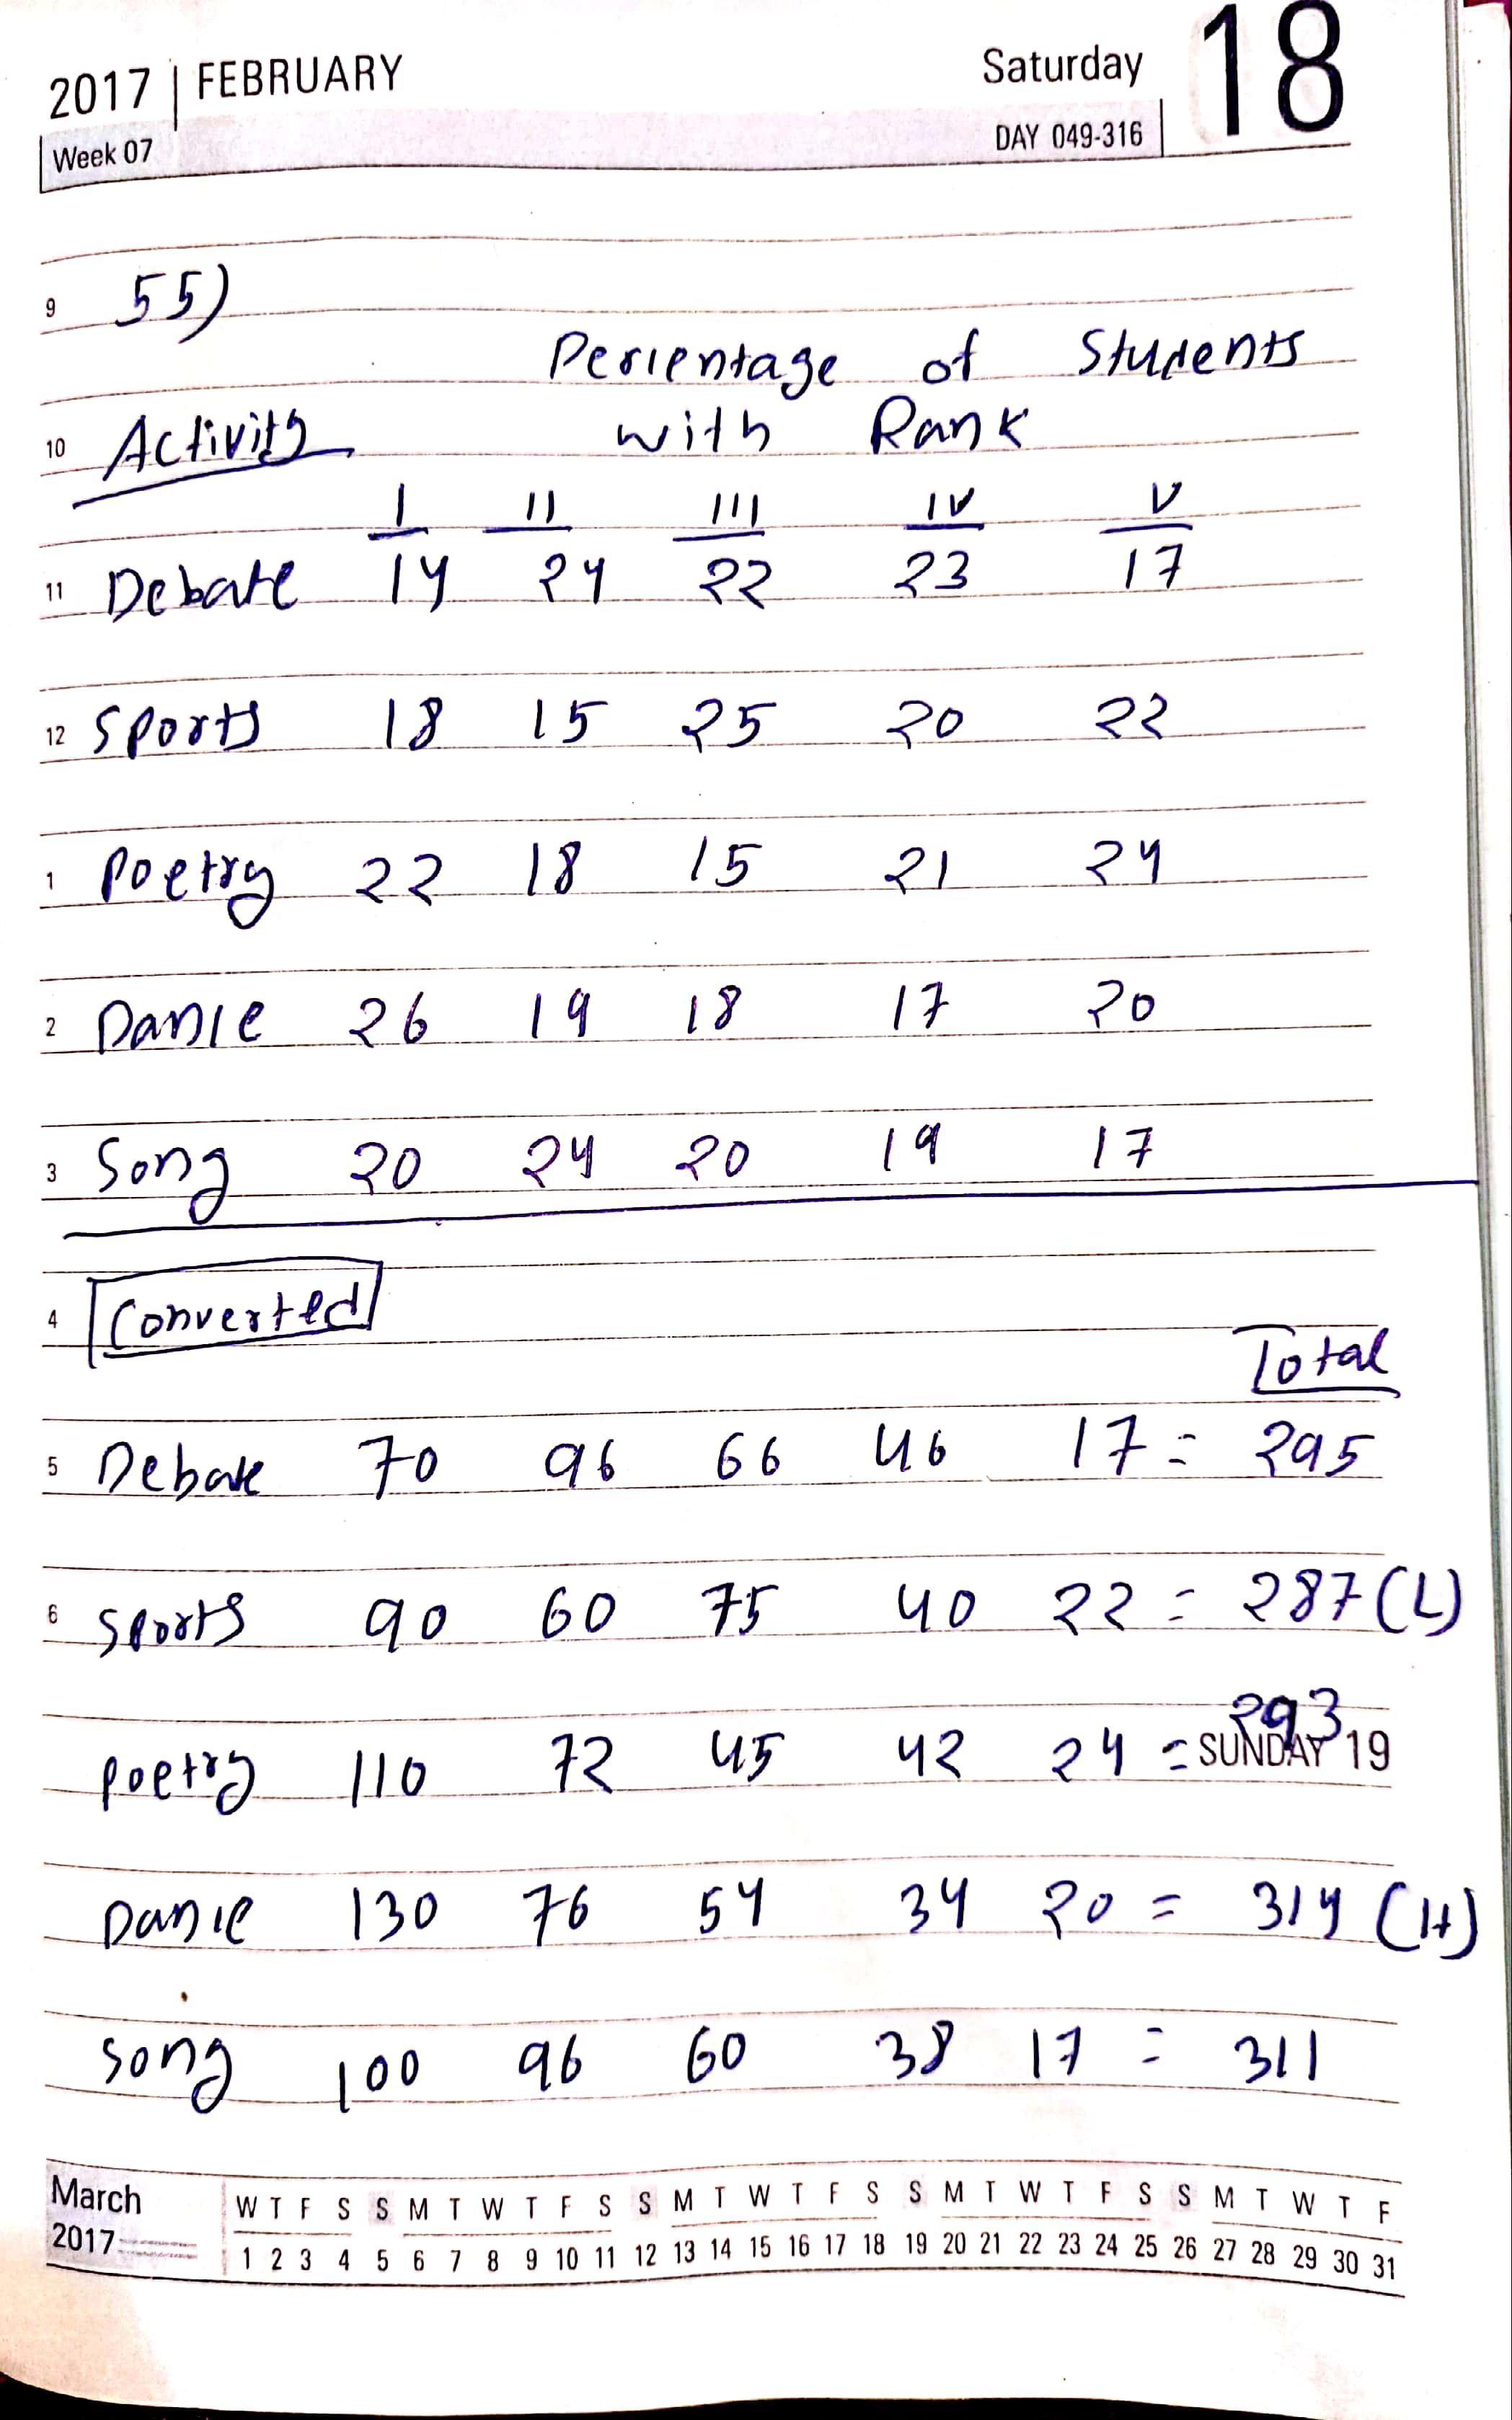 2017 | FEBRUARY Saturday 18
Week 07 DAY 049-316
9 55)
Percentage of Students
10 Activity with Rank
I II III IV V
11 Debate 14 24 22 23 17
12 Sports 18 15 25 20 22
1 Poetry 22 18 15 21 24
2 Dance 26 19 18 17 20
3 Song 20 24 20 19 17
4 Converted
Total
5 Debate 70 96 66 46 17 = 295
6 Sports 90 60 75 40 22 = 287 (L)
Poetry 110 72 45 42 24 = 293
SUNDAY 19
Dance 130 76 54 34 20 = 314 (H)
Song 100 96 60 38 17 = 311
March W T F S S M T W T F S S M T W T F S S M T W T F S S M T W T F
2017 1 2 3 4 5 6 7 8 9 10 11 12 13 14 15 16 17 18 19 20 21 22 23 24 25 26 27 28 29 30 31